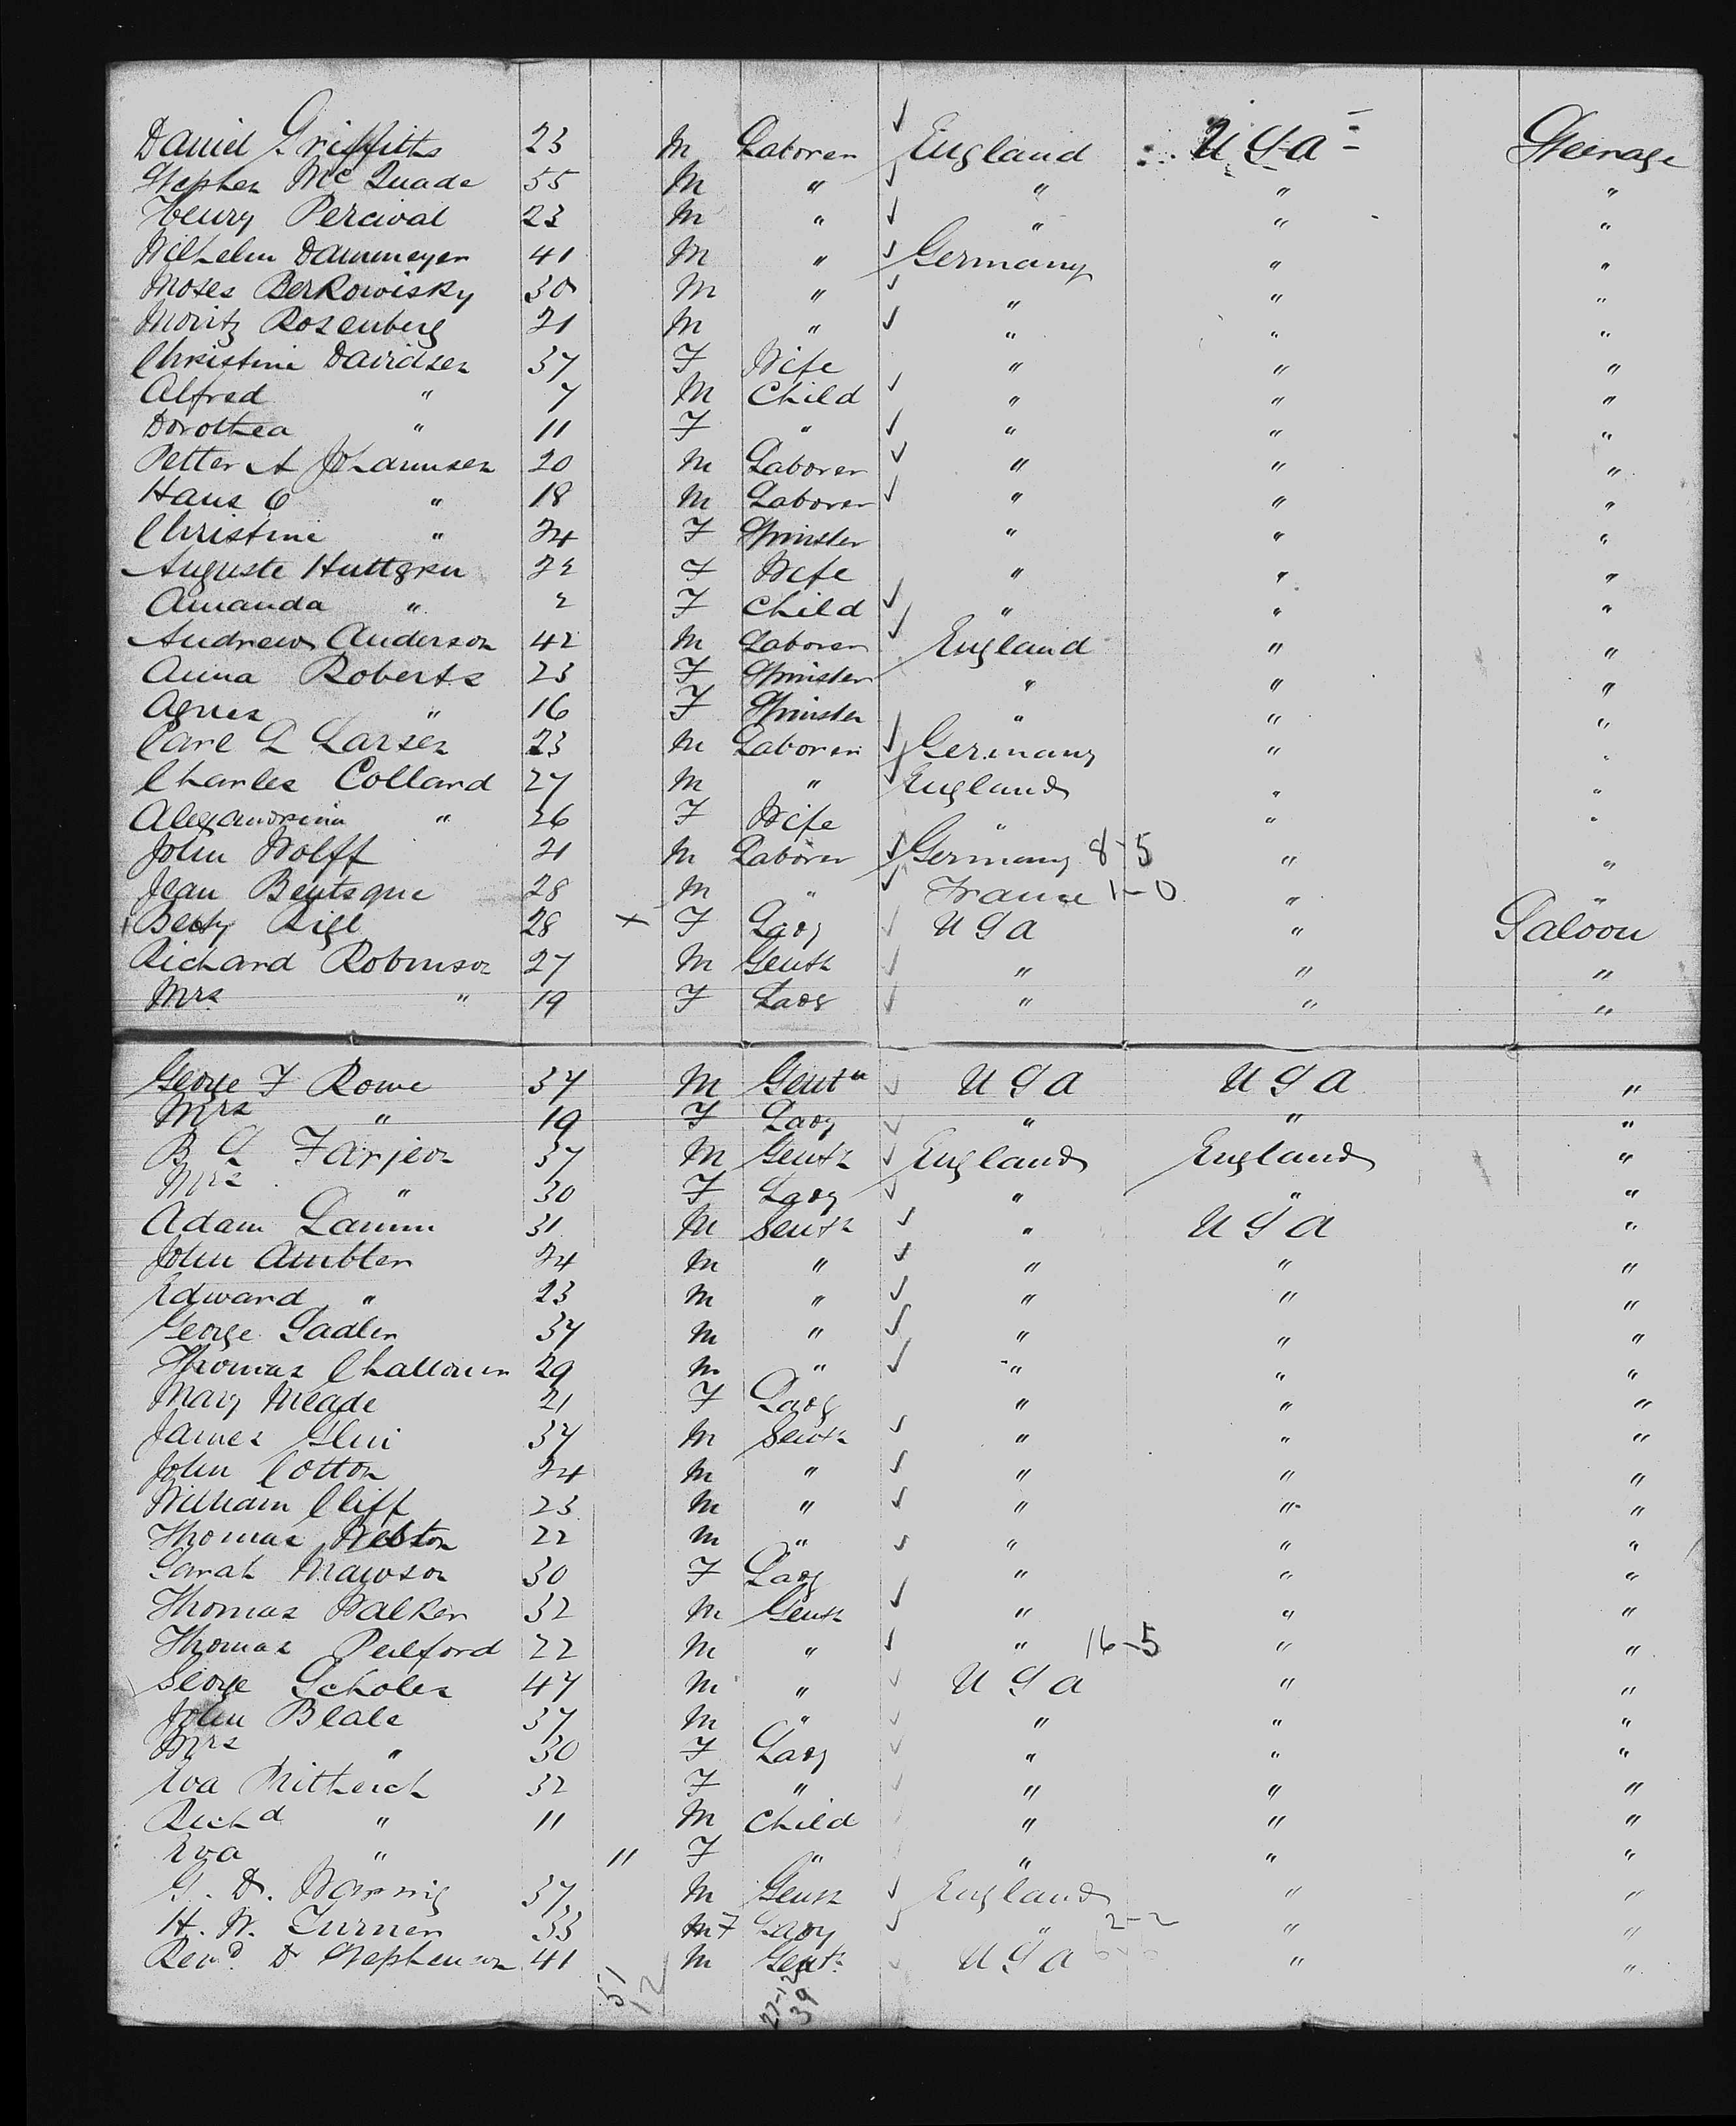 Daniel Griffiths 23 M Laborer ✓ England U S A Steerage
Stephen Mc Quade 55 M " ✓ " " "
Henry Percival 23 M " ✓ " " "
Wilhelm Dammeyer 41 M " ✓ Germany " "
Moses Berkowisky 30 M " ✓ " " "
Moritz Rosenberg 21 M " ✓ " " "
Christine Davidsen 37 F Wife " " "
Alfred " 7 M Child ✓ " " "
Dorothea " 11 F " ✓ " " "
Petter A Johannsen 20 M Laborer ✓ " " "
Hans O " 18 M Laborer ✓ " " "
Christine " 24 F Spinster " " "
Auguste Huttgren 22 F Wife " " "
Amanda " 2 F Child ✓ " " "
Andrew Anderson 42 M Laborer ✓ England " "
Anna Roberts 23 F Spinster " " "
Agnes " 16 F Spinster " " "
Carl L Larsen 23 M Laborer ✓ Germany " "
Charles Collard 27 M " ✓ England " "
Alexandrina " 26 F Wife " " "
John Wolff 21 M Laborer ✓ Germany 8-5 " "
Jean 28 M " ✓ France 1-0 " "
Betty Rigl 28 × F Lady ✓ U S A " Saloon
Richard Robinson 27 M Gentn ✓ " " "
Mrs " 19 F Lady ✓ " " "
George F Rowe 37 M Gentn ✓ U S A U S A "
Mrs " 19 F Lady ✓ " " "
B L Farjeon 37 M Gentn ✓ England England "
Mrs " 30 F Lady ✓ " " "
Adam Lamm 31 M Gentn ✓ " U S A "
John Ambler 24 M " ✓ " " "
Edward " 23 M " ✓ " " "
George Sadler 37 M " ✓ " " "
Thomas Challoner 29 M " ✓ " " "
Mary Meade 21 F Lady " " "
James Glen 37 M Gentn ✓ " " "
John Cotton 24 M " ✓ " " "
William Cliff 23 M " ✓ " " "
Thomas Webston 22 M " ✓ " " "
Sarah Mawson 30 F Lady " " "
Thomas Walker 32 M Gentn ✓ " " "
Thomas Pulford 22 M " ✓ " 16-5 " "
George Scholes 47 M " ✓ U S A " "
John Beale 37 M " ✓ " " "
Mrs " 30 F Lady ✓ " " "
Eva 32 F " ✓ " " "
Richd " 11 M Child " " "
Eva " 11 F " " " "
G. D. 37 M Gentn ✓ England " "
H. W. Turner 33 M F Lady ✓ " 2-2 " "
Revd. D Stephenson 41 M Gentn ✓ U S A 6-6 " "
51 27-12
12 39